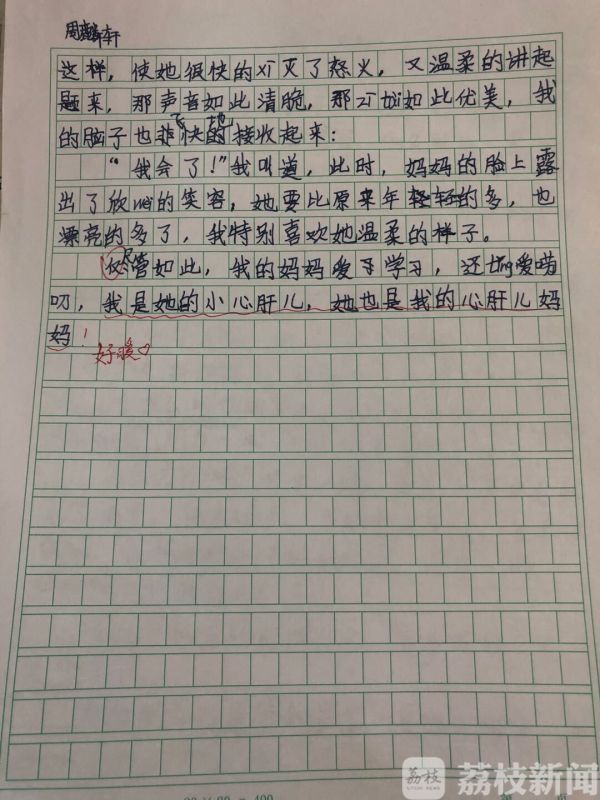 周麟轩
这样，使她很快的xī灭了怒火，又温柔的讲起
题来，那声音如此清脆，那zī tài如此优美，我
的脑子也飞快地接收起来：
“我会了！”我叫道，此时，妈妈的脸上露
出了欣wèi的笑容，她要比原来年轻的多，也
漂亮的多了，我特别喜欢她温柔的样子。
尽管如此，我的妈妈爱子学习，还tǐng爱唠
叨，我是她的小心肝儿，她也是我的心肝儿妈
妈！
好暖♡
荔枝
荔枝新闻
20×20=400